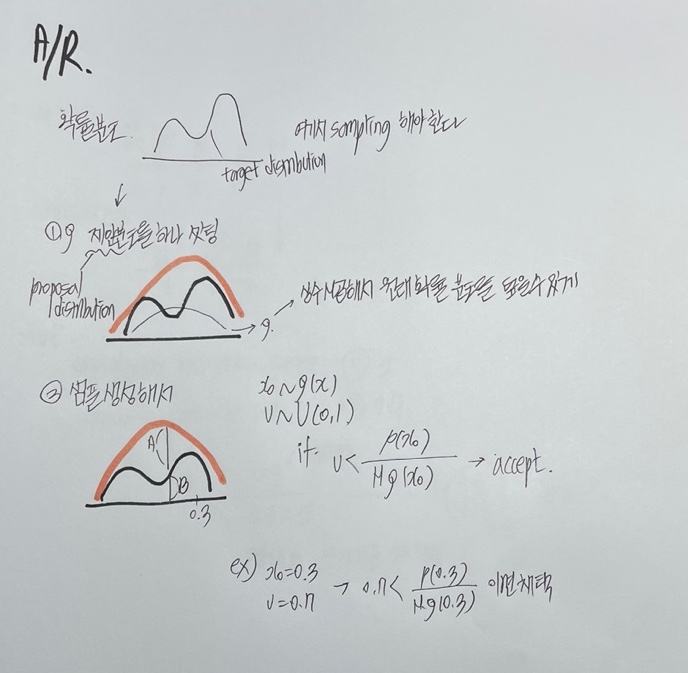 A/R.
확률분포 여기서 sampling 해야한다
target distribution
① g 제안분포를 하나 셋팅
proposal
distribution
g. 상수 곱해서 원래 확률 분포를 덮을 수 있게
② 샘플 생성해서
x₀ ~ g(x)
U ~ U(0,1)
if. U < p(x₀) / Mg(x₀) → accept.
A
B
0.3
ex) x₀=0.3
U=0.7 → 0.7 < p(0.3) / Mg(0.3) 이면 채택